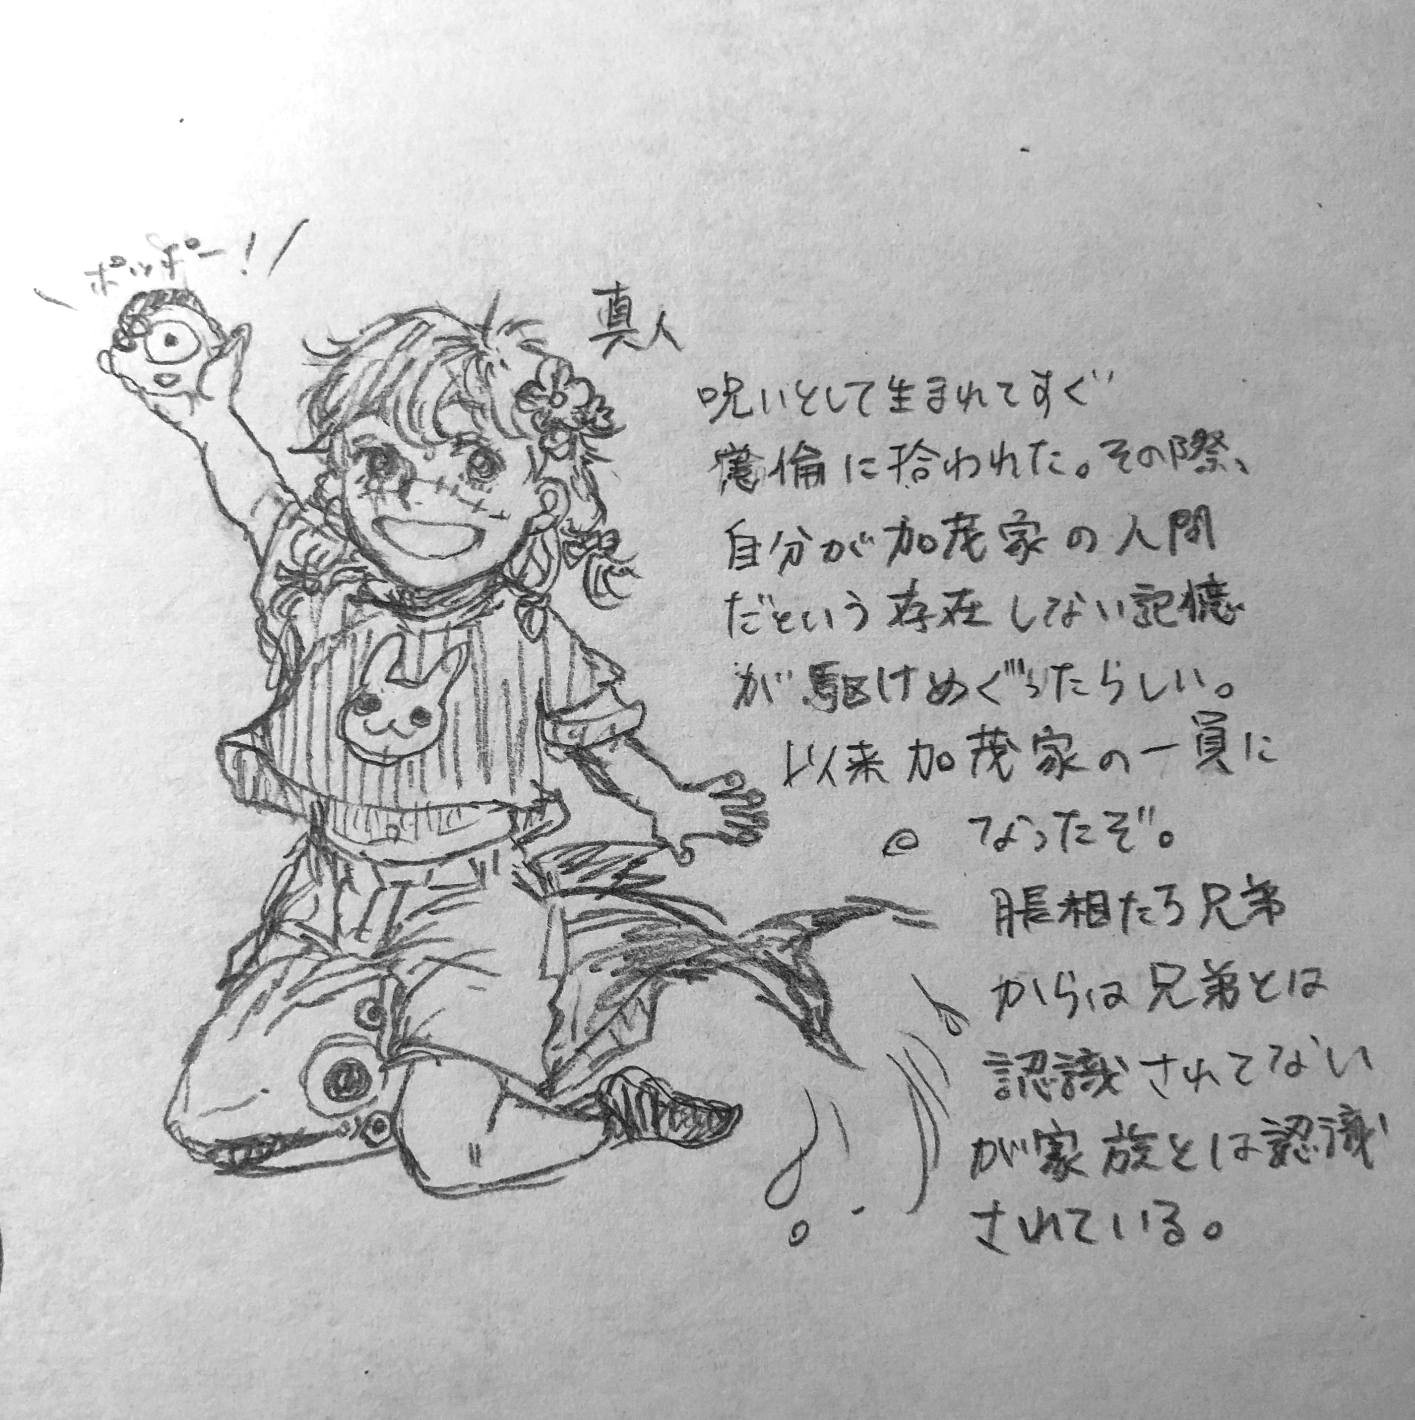 ポッポー!
真人
呪いとして生まれてすぐ
憲倫に拾われた。その際、
自分が加茂家の人間
だという存在しない記憶
が駆けめぐったらしい。
以来加茂家の一員に
なったぞ。
脹相たち兄弟
からは兄弟とは
認識されてない
が家族とは認識
されている。